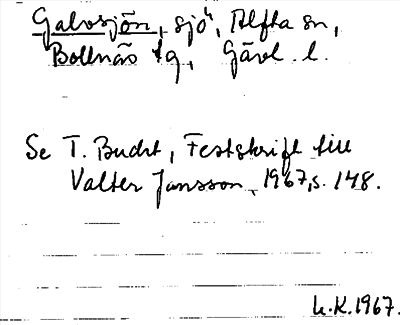 Galvsjön, sjö, Alfta sn,
Bollnäs tg, Gävl. l.
Se T. Bucht, Festskrift till
Valter Jansson, 1967, s. 148.
L.K. 1967.